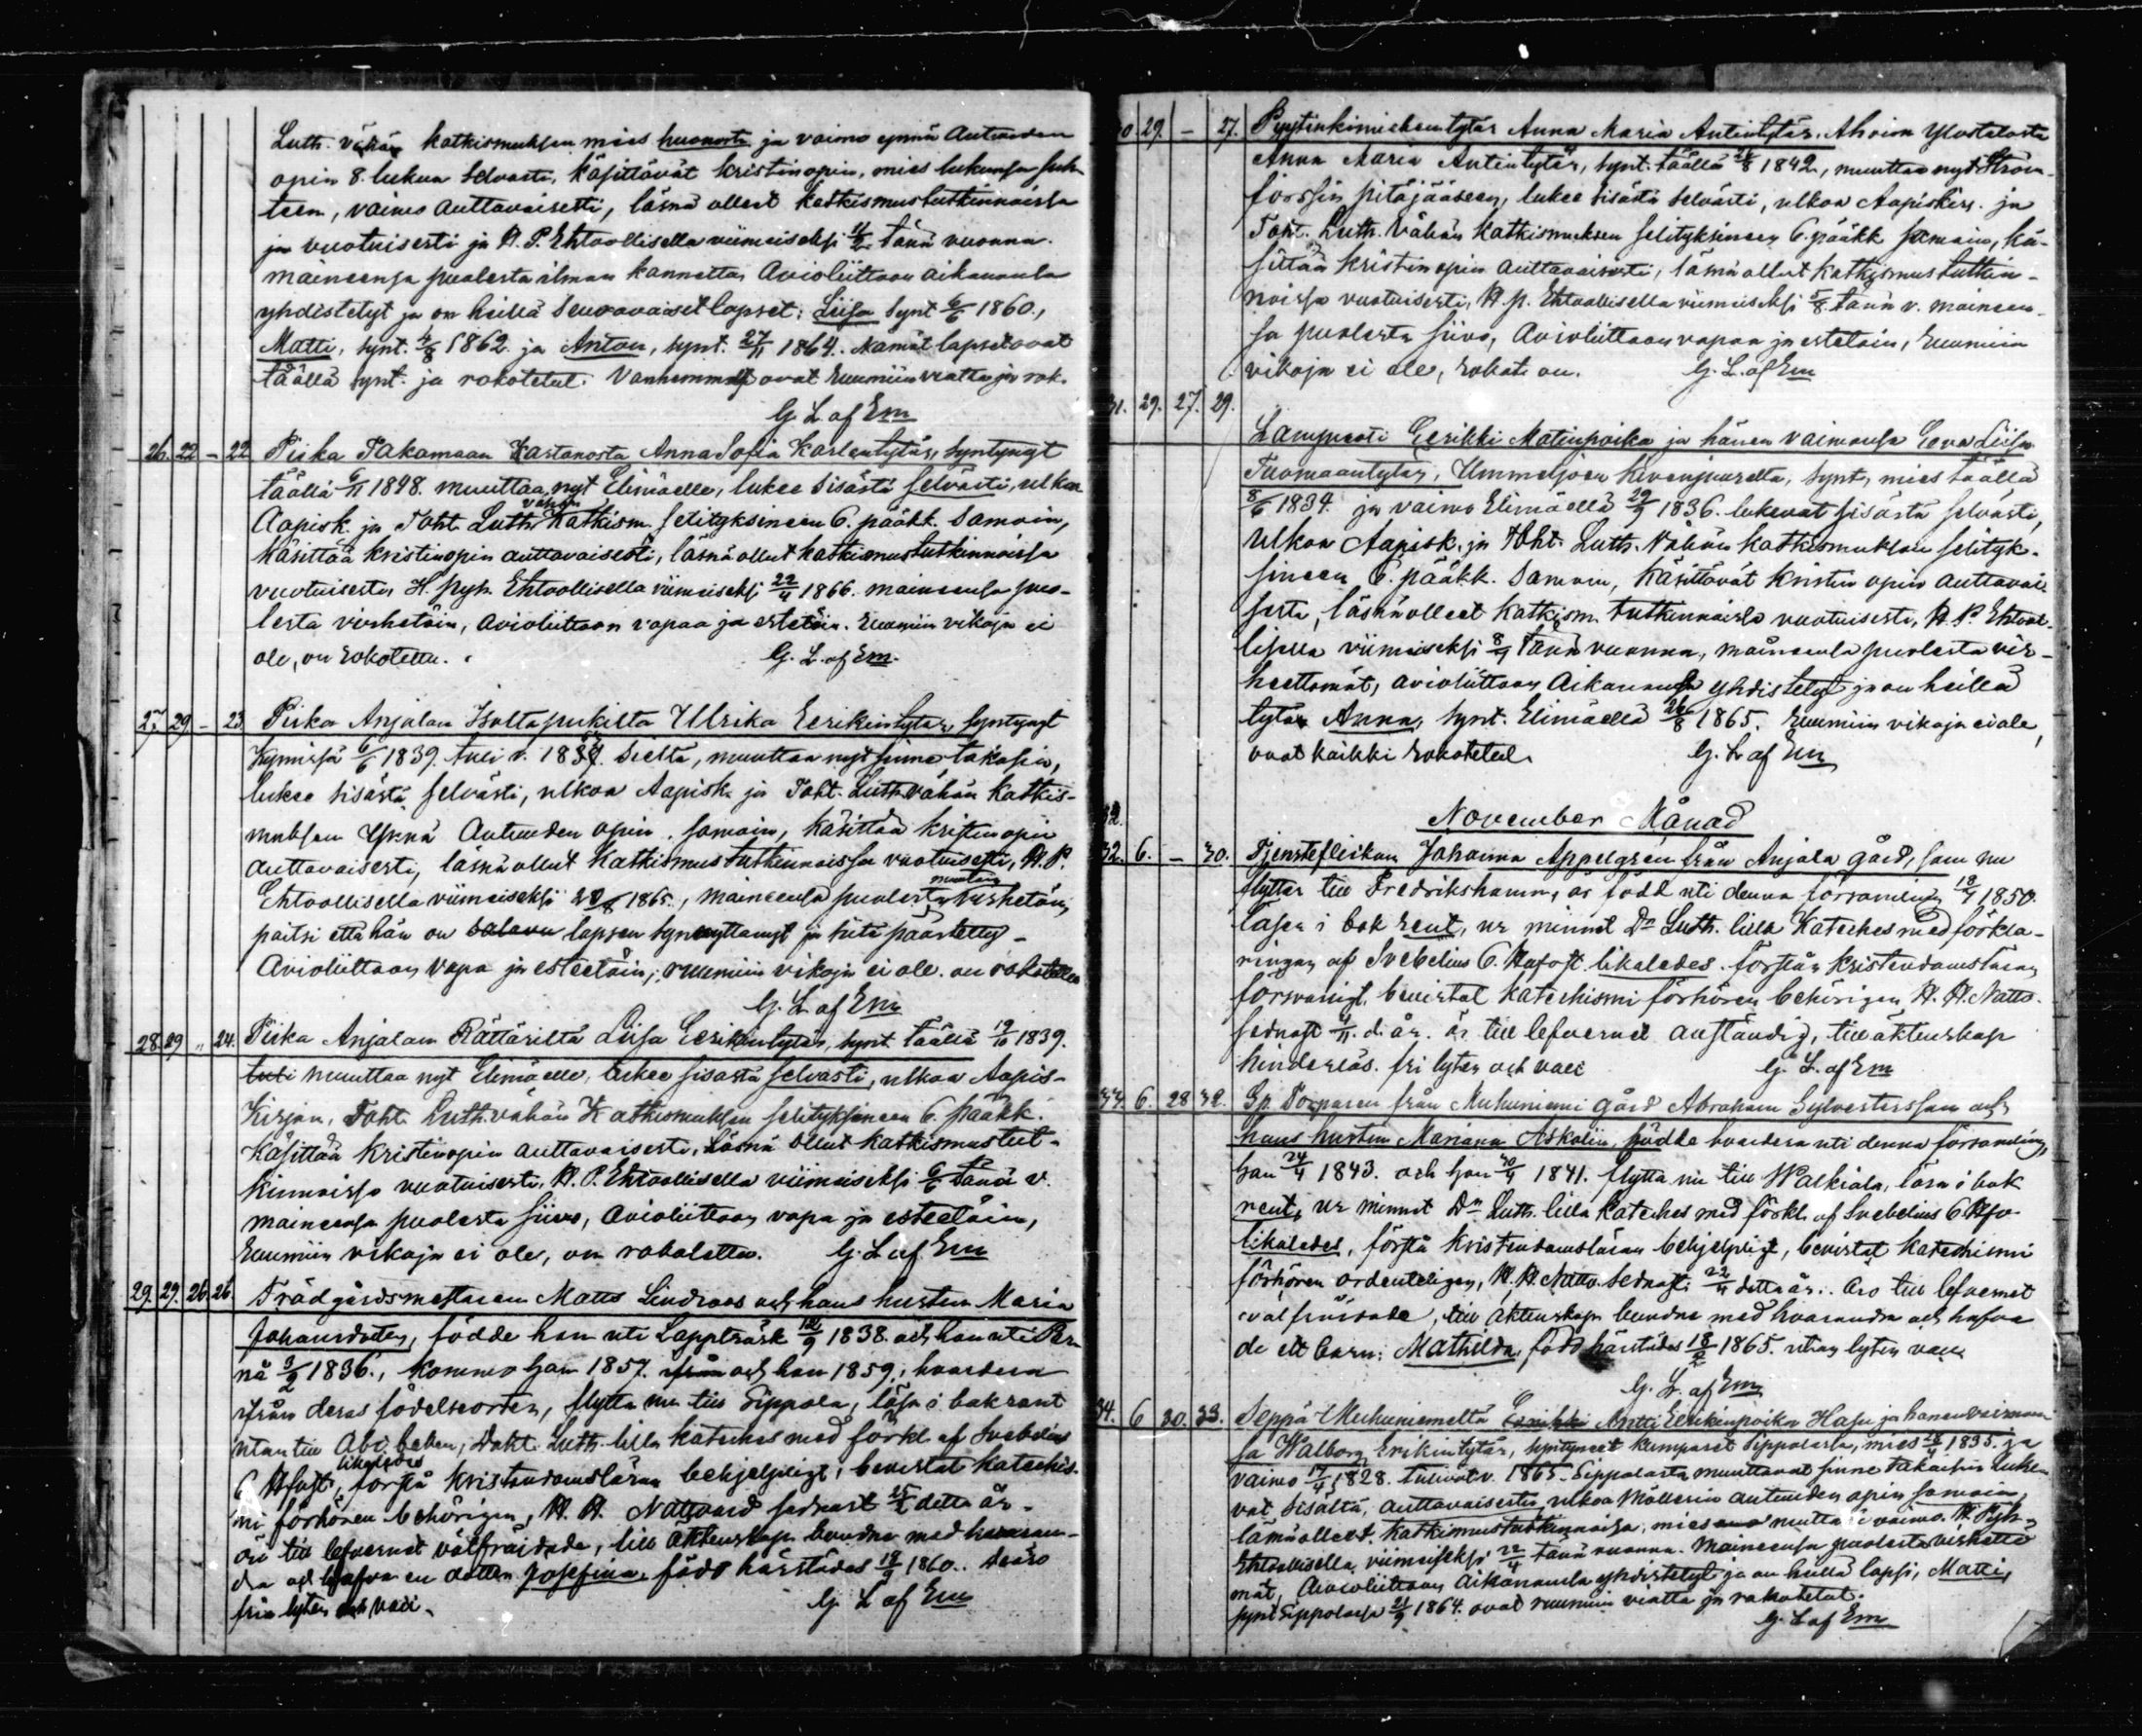 Luth. vähän katkismuksen mies huonosti ja vaimo ynnä Autuuden
opin 8. lukua selvästi, käsittävät kristinopin, mies lukunsa suh-
teen, vaimo auttavaisesti, läsnä olleet katkismustutkinnoissa
ja vuotuisesti ja H. P. Ehtoollisella viimeiseksi tänä vuonna.
maineensa puolesta ilman kannetta, Avioliittoon aikananansa
yhdistetyt ja on heillä seuraavaiset lapset: Liisa synt 6/6 1860.,
Matti, synt. 4/8 1862. ja Anton, synt. 27/11 1864. Nämät lapset ovat
täällä synt. ja rokotetut. Vanhemmat ovat ruumiin viatta ja rok.
G. L. af Em
26. 22 - 22 Piika Takamaan Kartanosta Anna Sofia Karlentytär, syntynyt
täällä 6/11 1848. muuttaa nyt Elimäelle, lukee sisästä selvästi, ulkoa
Aapisk. ja Toht. Luth. vähän Katkism. selityksineen 6. pääkk. samoin,
käsittää kristinopin auttavaisesti, läsnä ollut katkismustutkinnoissa
vuotuisesti, H. pyh. Ehtoollisella viimeiseksi 22/4 1866. maineensa puo-
lesta virhetöin, avioliittoon vapaa ja estetöin. Ruumiin vikoja ei
ole, on rokotettu. G. L. af Em.
27. 29 - 23 Piika Anjalan Isaltapukilta Ulrika Eerikintytär, syntynyt
Kymissä 6/6 1839. tuli v. sieltä, muuttaa nyt sinne takasin,
lukee sisästä selvästi, ulkoa Aapisk. ja Toht. Luth. vähän Katkis-
muksen ynnä Autuuden opin samoin, käsittää kristinopin
auttavaisesti, läsnä ollut katkismustutkinnoissa vuotuisesti, H. P.
Ehtoollisella viimeiseksi 1865., maineensa puolesta muutoin virhetöin,
paitsi että hän on lapsen synnyttänyt ja siitä päästetty -
Avioliittoon vapa ja esteetöin; ruumiin vikoja ei ole. on rokotettu
G. L. af Em
28. 29 „ 24. Piika Anjalan Rättäriltä Liisa Eerikintytär, synt. täällä 19/10 1839.
tuli muuttaa nyt Elimäelle, lukee sisästä selvästi, ulkoa Aapis-
kirjan, Toht. Luth. vähän Katkismuksen selityksineen 6. pääkk.
käsittää kristinopin auttavaisesti, läsnä ollut katkismustut-
kinnoissa vuotuisesti, H. P. Ehtoollisella viimeiseksi 6/6 tänä v.
maineensa puolesta siivo, avioliittoon vapa ja esteetöin,
Ruumiin vikoja ei ole, on rokotettu. G. L. af Em
29. 29. 26 26 Trädgårdsmästaren Matts Lindroos och hans hustru Maria
Johansdotter, födde han uti Lappträsk 12/9 1838. och hon uti Per-
nå 3/2 1836., kommo han 1857. ifrån och hon 1859., hvardera
ifrån deras födelseorten, flytta nu till Sippola, läsa i bok rent
utantill Abc boken, Dokt. Luth. lilla kateches med förkl. af Svebelius
6 Hfst likaledes, förstå kristendomsläran behjelpligt, bevistat katechis-
mi förhören behörigen, H. H. Nattvard sednast detta år.
äro till lefvernet välfräjdade, till äktenskap bundna med hvaran-
dra och hafva en dotter Josefina, född härstädes 19/9 1860. De äro
fria lyten och vacc. G. L. af Em
30. 29. - 27. Pyytinkimiehentytär Anna Maria Antintytär. Ahvion Ylostalosta
Anna Maria Antintytär, synt. täällä 1842, muuttaa nyt Ström-
forssin pitäjääseen, lukee sisästä selvästi, ulkoa Aapiskirj. ja
Toht. Luth. Vähän Katkismuksen selityksineen 6. pääkk samoin, kä-
sittää Kristinopin auttavaisesti, läsnä ollut katkismus tutkin-
noissa vuotuisesti, H. p. Ehtoollisella viimeiseksi 5/8 tänä v. maineen-
sa puolesta siivo, Avioliittoon vapaa ja estetöin, Ruumiin
vikoja ei ole, rokote on. G. L. af Em
31. 29. 27. 29.
Lampuoti Eerikki Matinpoika ja hänen vaimonsa Eeva Liisa
Tuomaantytär, Ummeljoen Kivenjuurelta, synt, mies täällä
8/6 1834. ja vaimo Elimäellä 29/9 1836. lukevat sisästä selvästi,
ulkoa Aapisk. ja Toht. Luth. Vähän Katkismuksen selityk-
sineen 6. pääkk. samoin, käsittävät kristin opin auttavai-
sesti, läsnä olleet katkism. tutkinnoissa vuotuisesti, H. P. Ehtool-
lisella viimeiseksi 8/9 tänä vuonna, maineensa puolesta vir-
heettömät, avioliittoon Aikananansa yhdistetyt ja on heillä
tytär Anna, synt. Elimäellä 26/8 1865. Ruumiin vikoja ei ole,
ovat kaikki rokotetut. G. L. af Em
32.
November Månad
32. 6. - 30. Tjensteflickan Johanna Appelgrén från Anjala gård, som nu
flyttar till Fredrikshamn, är född uti denna församling 18/7 1850.
läser i bok rent, ur minnet Dr Luth. lilla Kateches med förkla-
ringen af Svebelius 6. Hufvst. likaledes. förstår kristendomsläran
försvarligt, bevistat katechismi förhören behörigen, H. H. Nattv.
sednast d. år. är till lefvernet anständig, till äktenskap
hinderslös. fri lyten och vacc G. L. af Em
33. 6. 28 32. Sp. Torparen från Muhuniemi gård Abraham Sylvestersson och
hans hustru Mariana Askolin, födde hvardera uti denna församling,
han 24/4 1843. och hon 30/4 1841. flytta nu till Walkiala, läsa i bok
rent, ur minnet Dr. Luth. lilla kateches med förkl. af Svebelius 6 Hfv.
likaledes, förstå kristendomsläran behjelpligt, bevistat katechismi
förhören ordenteligen, H. H. Nattv. sednast: 22/4 detta år. äro till lefvernet
välfräjdade, till äktenskap bundne med hvarandra och hafva
de ett barn: Mathilda, född härstädes 1865. utan lyten vacc.
G. L. af Em
34. 6 30. 33. Seppä Muhuniemeltä Antti Eerikinpoika Hasu ja hänen vaimon-
sa Walborg Erikintytär, syntyneet kumpaset Sippolassa, mies 1835. ja
vaimo 17/4 1828. tulivat v. 1865. Sippolasta muuttavat sinne takaisin luke-
vat sisältä, auttavaisesti, ulkoa Möllerin autuuden opin samoin,
läsnä olleet katkismustutkinnoissa, mies mutta ei vaimo. H. Pyh.
Ehtoollisella viimeiseksi 22/4 tänä vuonna. Maineensa puolesta virhettö-
mät, Avioliittoon Aikananansa yhdistetyt ja on heillä lapsi, Matti,
synt Sippolassa 21/9 1864. ovat ruumiin viatta ja rokotetut.
G. L. af Em